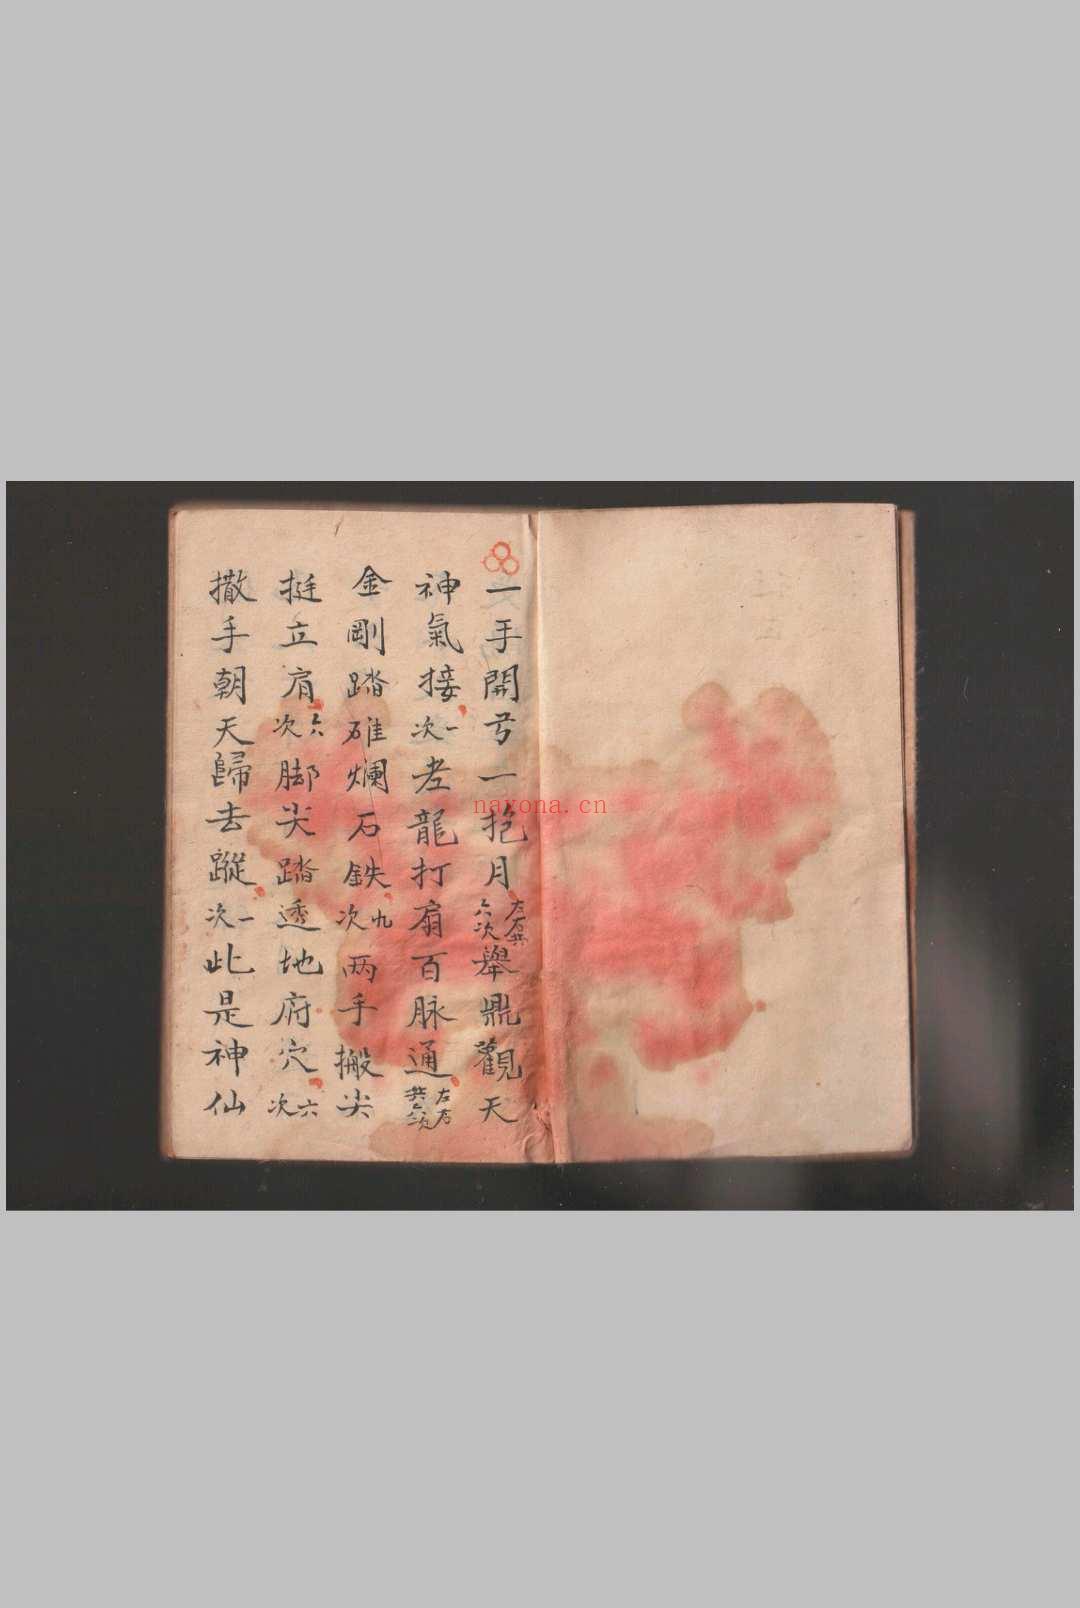 一手開弓一抱月左右共六次舉鼎觀天
神氣接一次老龍打扇百脉通左右共六次
金剛踏碓爛石鉄九次两手搬尖
挺立肩六次脚尖踏透地府穴六次
撒手朝天歸去蹤一次此是神仙
nayona.cn